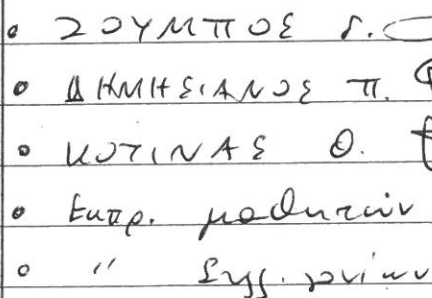 • ΖΟΥΜΠΟΣ Γ.
• ΔΗΜΗΣΙΑΝΟΣ Π.
• ΚΟΤΙΝΑΣ Θ.
• Εκπρ. μαθητών
• " Συλλ. γονέων